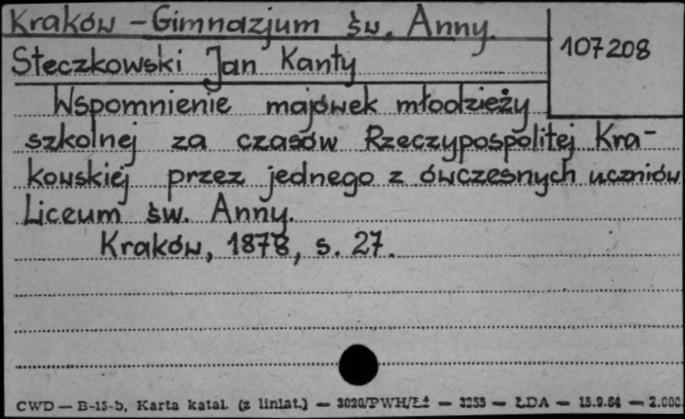 Kraków - Gimnazjum św. Anny.
107208
Steczkowski Jan Kanty
Wspomnienie majówek młodzieży
szkolnej za czasów Rzeczypospolitej Kra-
kowskiej przez jednego z ówczesnych uczniów
Liceum św. Anny.
Kraków, 1878, s. 27.
CWD — B-15-b, Karta katal. (z liniat.) — 3020/PWH/Łż — 3253 — ŁDA — 15.9.64 — 2.000.